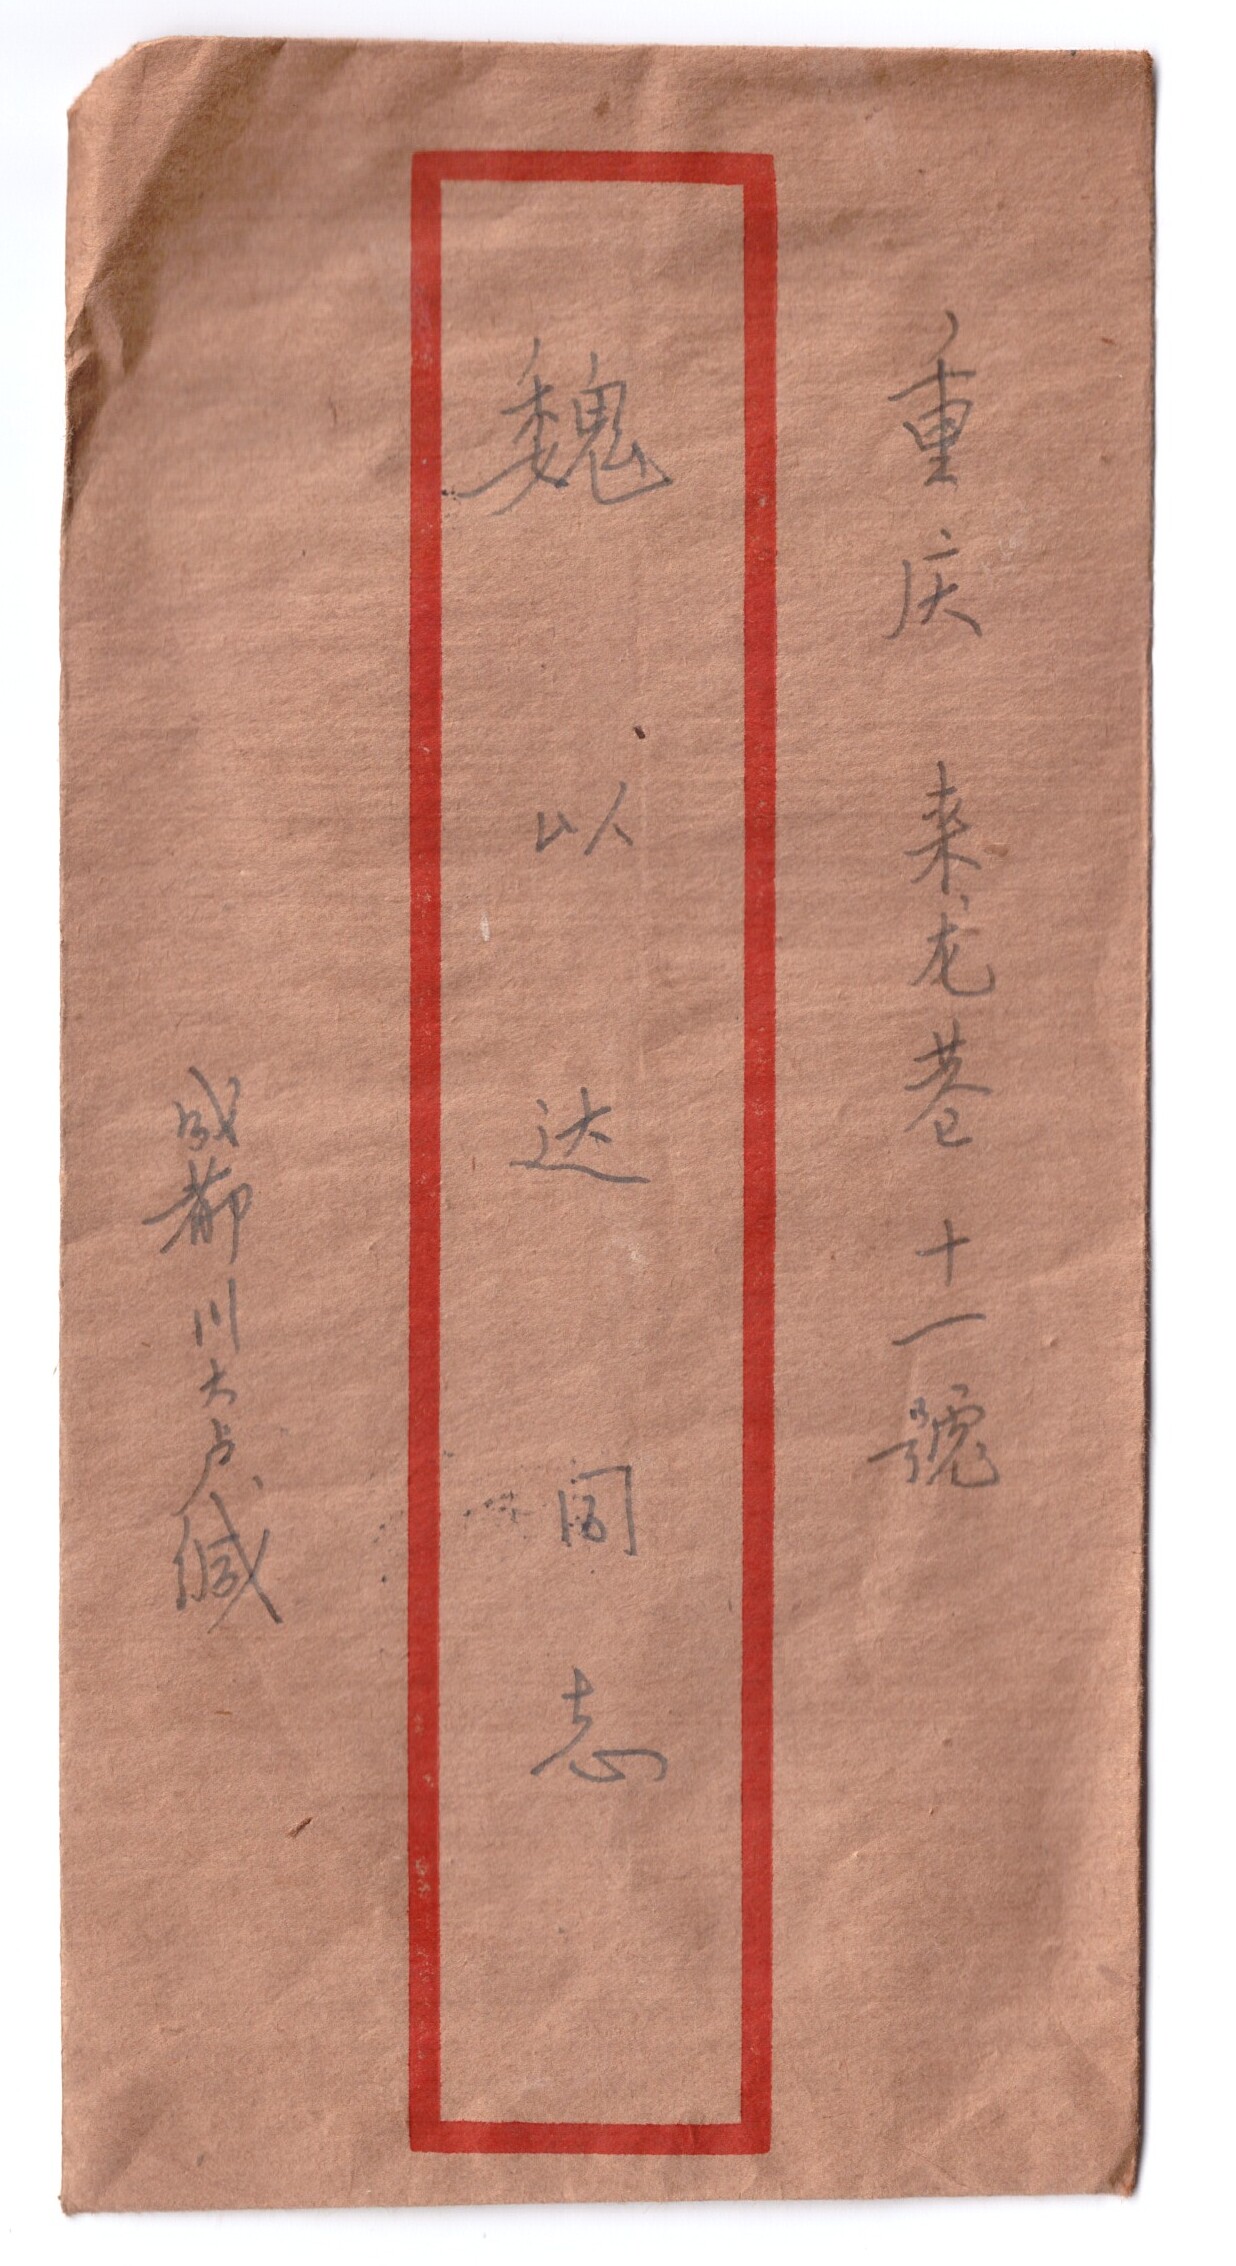 重庆 来龙巷十一號
魏以达同志
成都川大卢缄